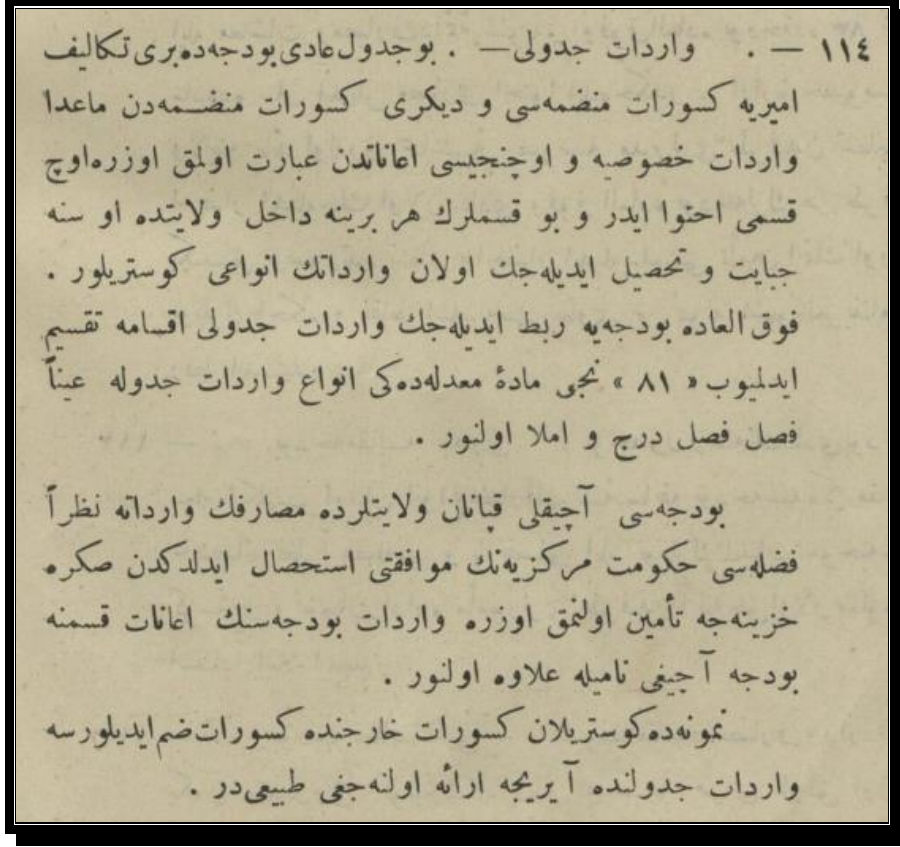 ١١٤ — . واردات جدولی — . بو جدول عادی بودجه‌ده بری تکالیف
امیریه کسورات منضمه‌سی و دیکری کسورات منضمه‌دن ماعدا
واردات خصوصیه و اوچنجیسی اعاناتدن عبارت اولمق اوزره اوچ
قسمی احتوا ایدر و بو قسملرك هر برینه داخل ولایتده او سنه
جبایت و تحصیل ایدیله‌جك اولان وارداتك انواعی کوستریلور .
فوق العاده بودجه‌یه ربط ایدیله‌جك واردات جدولی اقسامه تقسیم
ایدلمیوب « ٨١ » نجی مادۀ معدله‌ده‌کی انواع واردات جدوله عیناً
فصل فصل درج و املا اولنور .
بودجه‌سی آچیقلی قپانان ولایتلرده مصارفك وارداته نظراً
فضله‌سی حکومت مرکزیه‌نك موافقتی استحصال ایدلدکدن صکره
خزینه‌جه تأمین اولنمق اوزره واردات بودجه‌سنك اعانات قسمنه
بودجه آچیغی نامیله علاوه اولنور .
نمونه‌ده کوستریلان کسورات خارجنده کسورات ضم ایدیلورسه
واردات جدولنده آیریجه ارائه اولنه‌جغی طبیعی‌در .